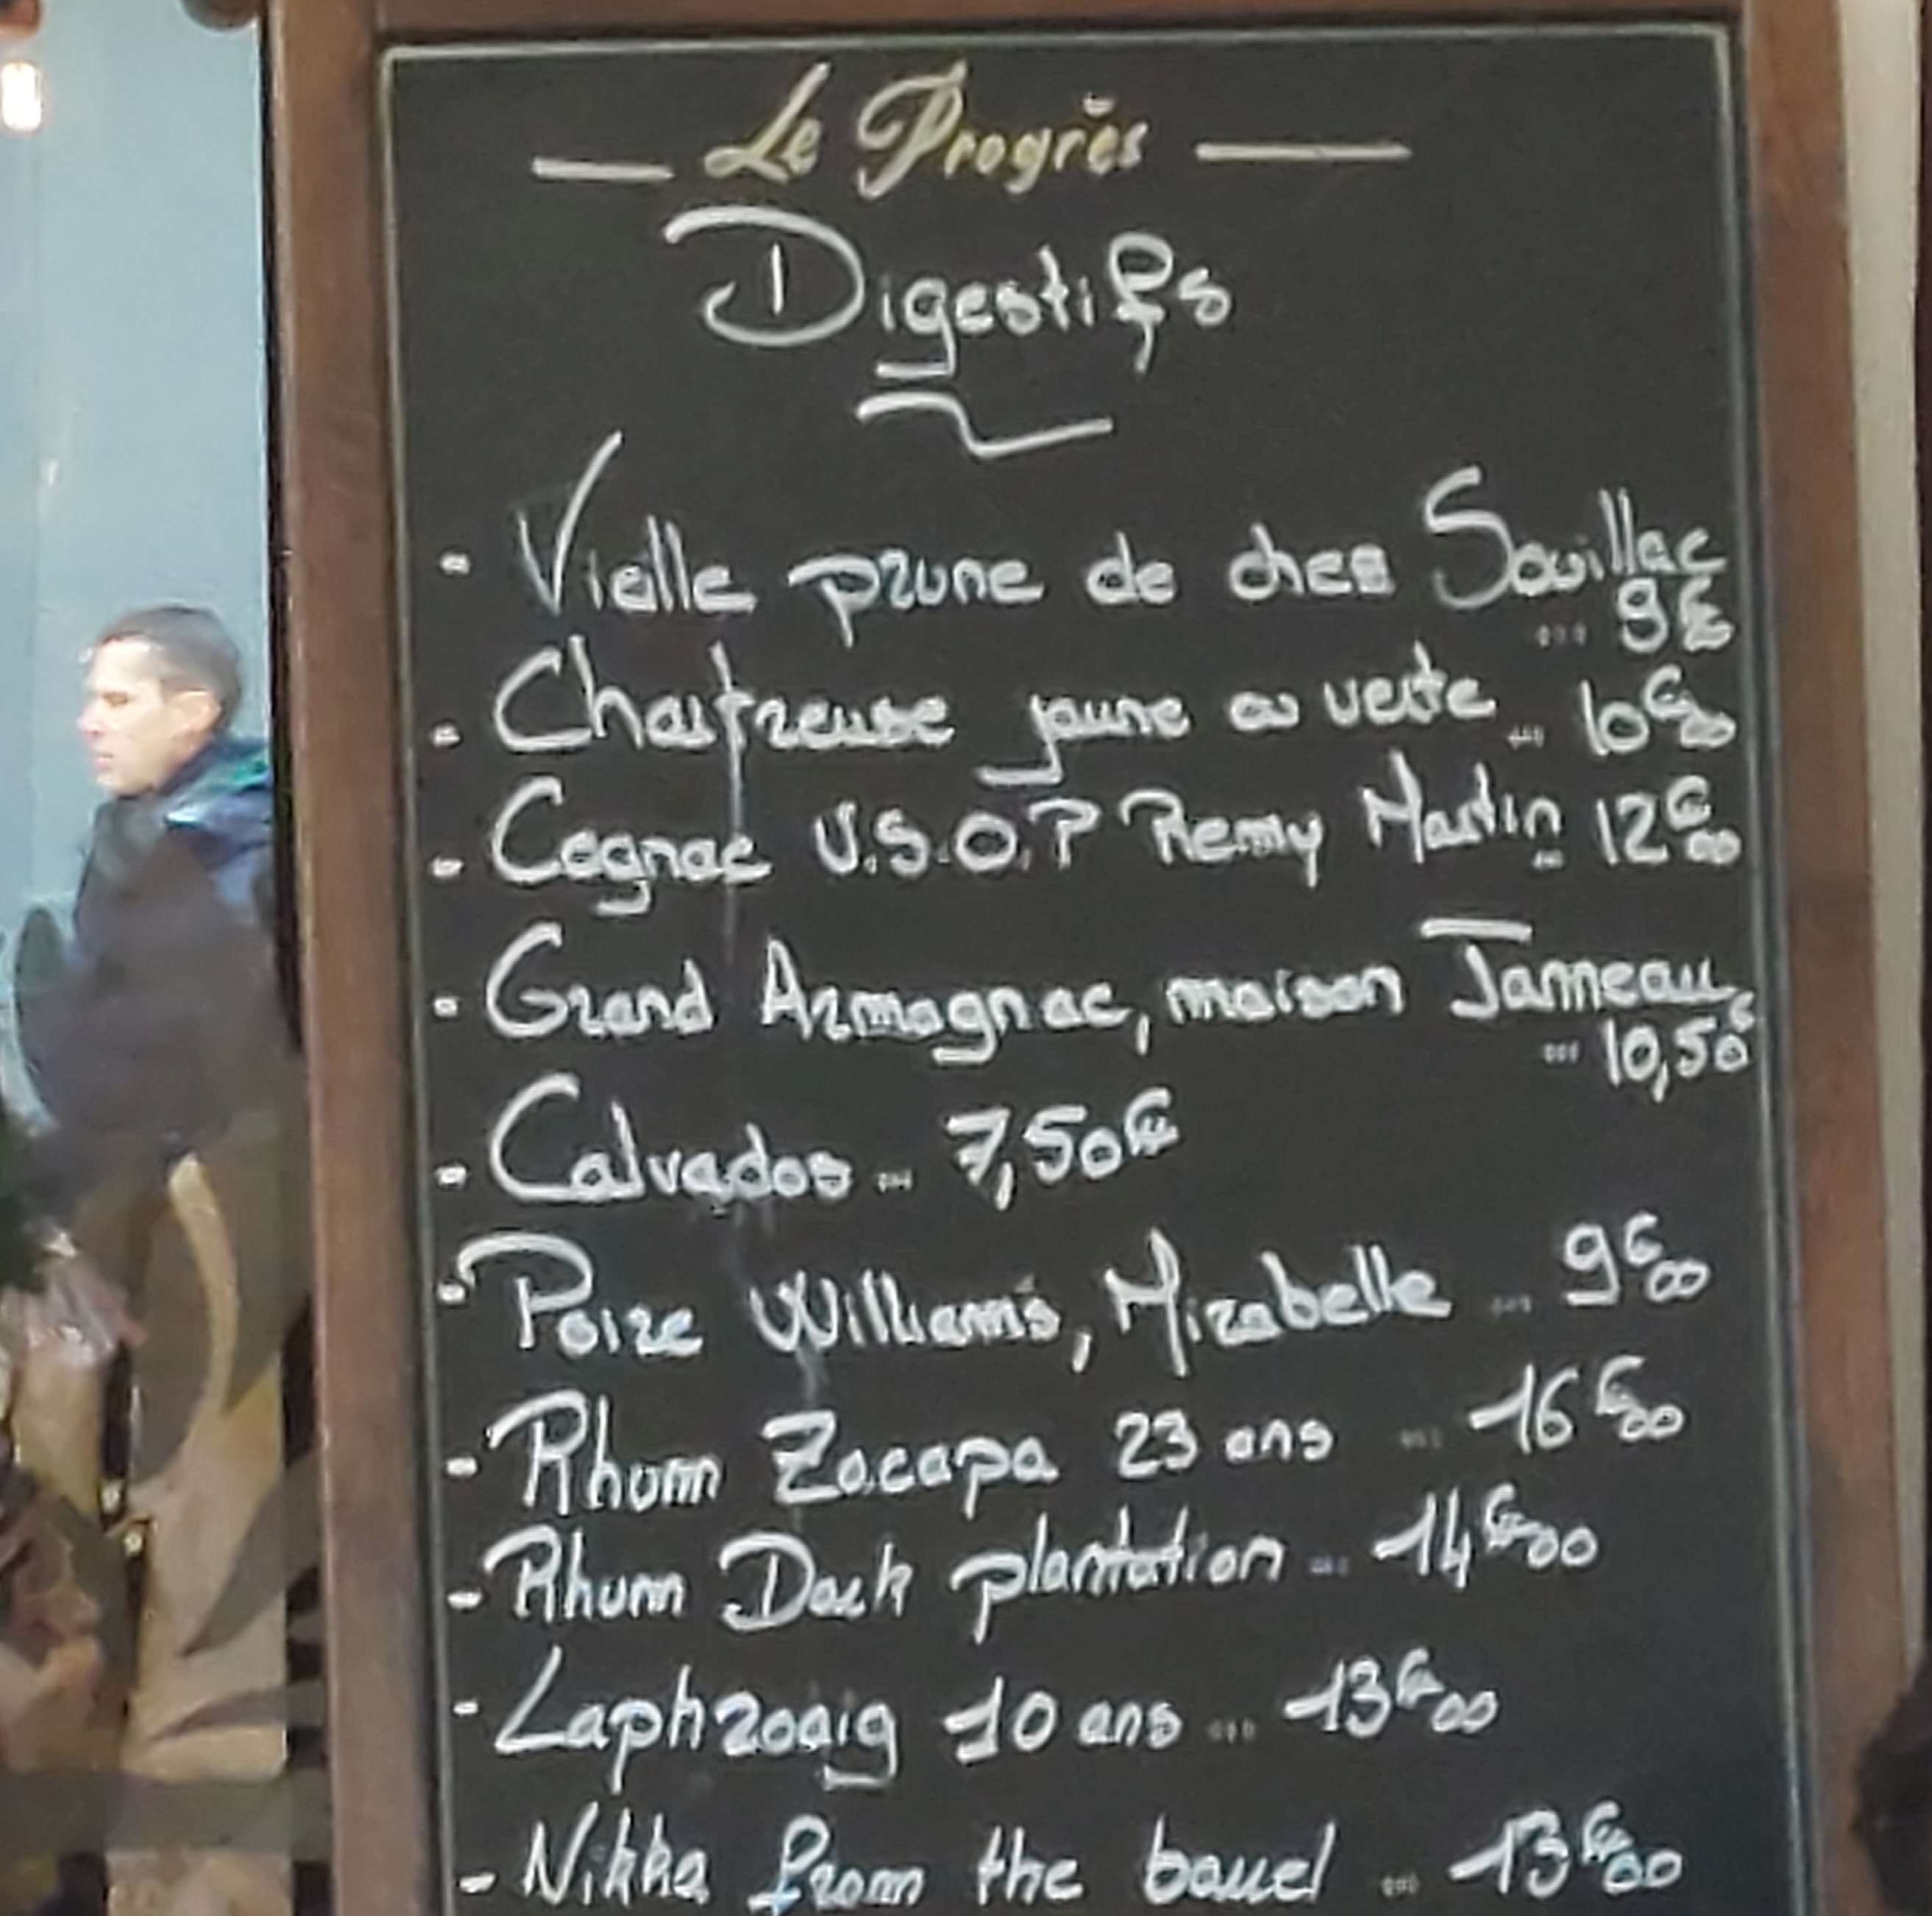 Le Progrès
Digestifs
- Vieille prune de chez Souillac
... 9€00
- Chartreuse jaune ou verte ... 10€00
- Cognac V.S.O.P Remy Martin ... 12€00
- Grand Armagnac, maison Janneau
... 10,50€
- Calvados ... 7,50€
- Poire Williams, Mirabelle ... 9€00
- Rhum Zacapa 23 ans ... 16€00
- Rhum Dark plantation ... 14€00
- Laphroaig 10 ans ... 13€00
- Nikka from the barrel ... 13€00